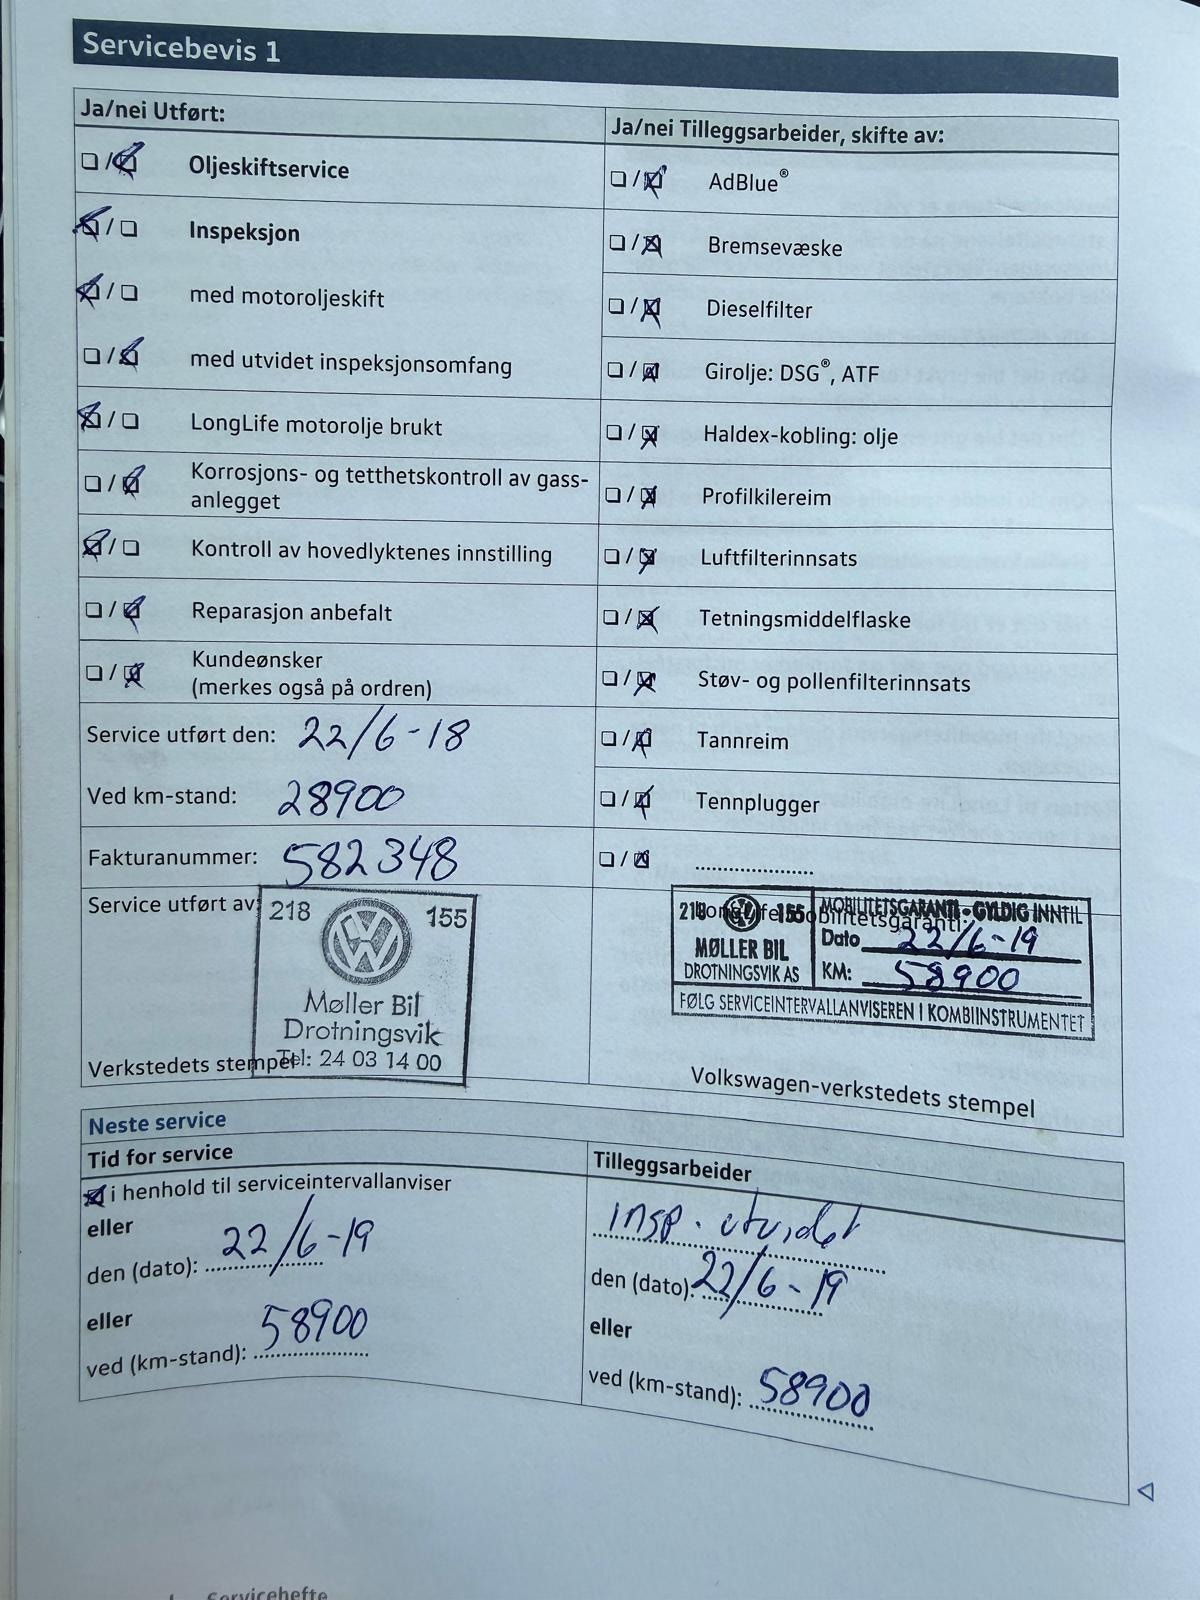 Servicebevis 1
Ja/nei Utført:
☐ / ☒ Oljeskiftservice
☒ / ☐ Inspeksjon
☒ / ☐ med motoroljeskift
☐ / ☒ med utvidet inspeksjonsomfang
☒ / ☐ LongLife motorolje brukt
☐ / ☒ Korrosjons- og tetthetskontroll av gass-
anlegget
☒ / ☐ Kontroll av hovedlyktenes innstilling
☐ / ☒ Reparasjon anbefalt
☐ / ☒ Kundeønsker
(merkes også på ordren)
Service utført den: 22/6-18
Ved km-stand: 28900
Fakturanummer: 582348
Service utført av:
218 155
Møller Bil
Drotningsvik
Tel: 24 03 14 00
Verkstedets stempel
Ja/nei Tilleggsarbeider, skifte av:
☐ / ☒ AdBlue®
☐ / ☒ Bremsevæske
☐ / ☒ Dieselfilter
☐ / ☒ Girolje: DSG®, ATF
☐ / ☒ Haldex-kobling: olje
☐ / ☒ Profilkilereim
☐ / ☒ Luftfilterinnsats
☐ / ☒ Tetningsmiddelflaske
☐ / ☒ Støv- og pollenfilterinnsats
☐ / ☒ Tannreim
☐ / ☒ Tennplugger
☐ / ☒ ....................
LongLife mobilitetsgaranti:
218 155
MØLLER BIL
DROTNINGSVIK AS
MOBILITETSGARANTI - GYLDIG INNTIL
Dato 22/6-19
KM: 58900
FØLG SERVICEINTERVALLANVISEREN I KOMBIINSTRUMENTET
Volkswagen-verkstedets stempel
Neste service
Tid for service
☒ i henhold til serviceintervallanviser
eller
den (dato): 22/6-19
eller
ved (km-stand): 58900
Tilleggsarbeider
insp. utvidet
den (dato): 22/6-19
eller
ved (km-stand): 58900
Servicehefte